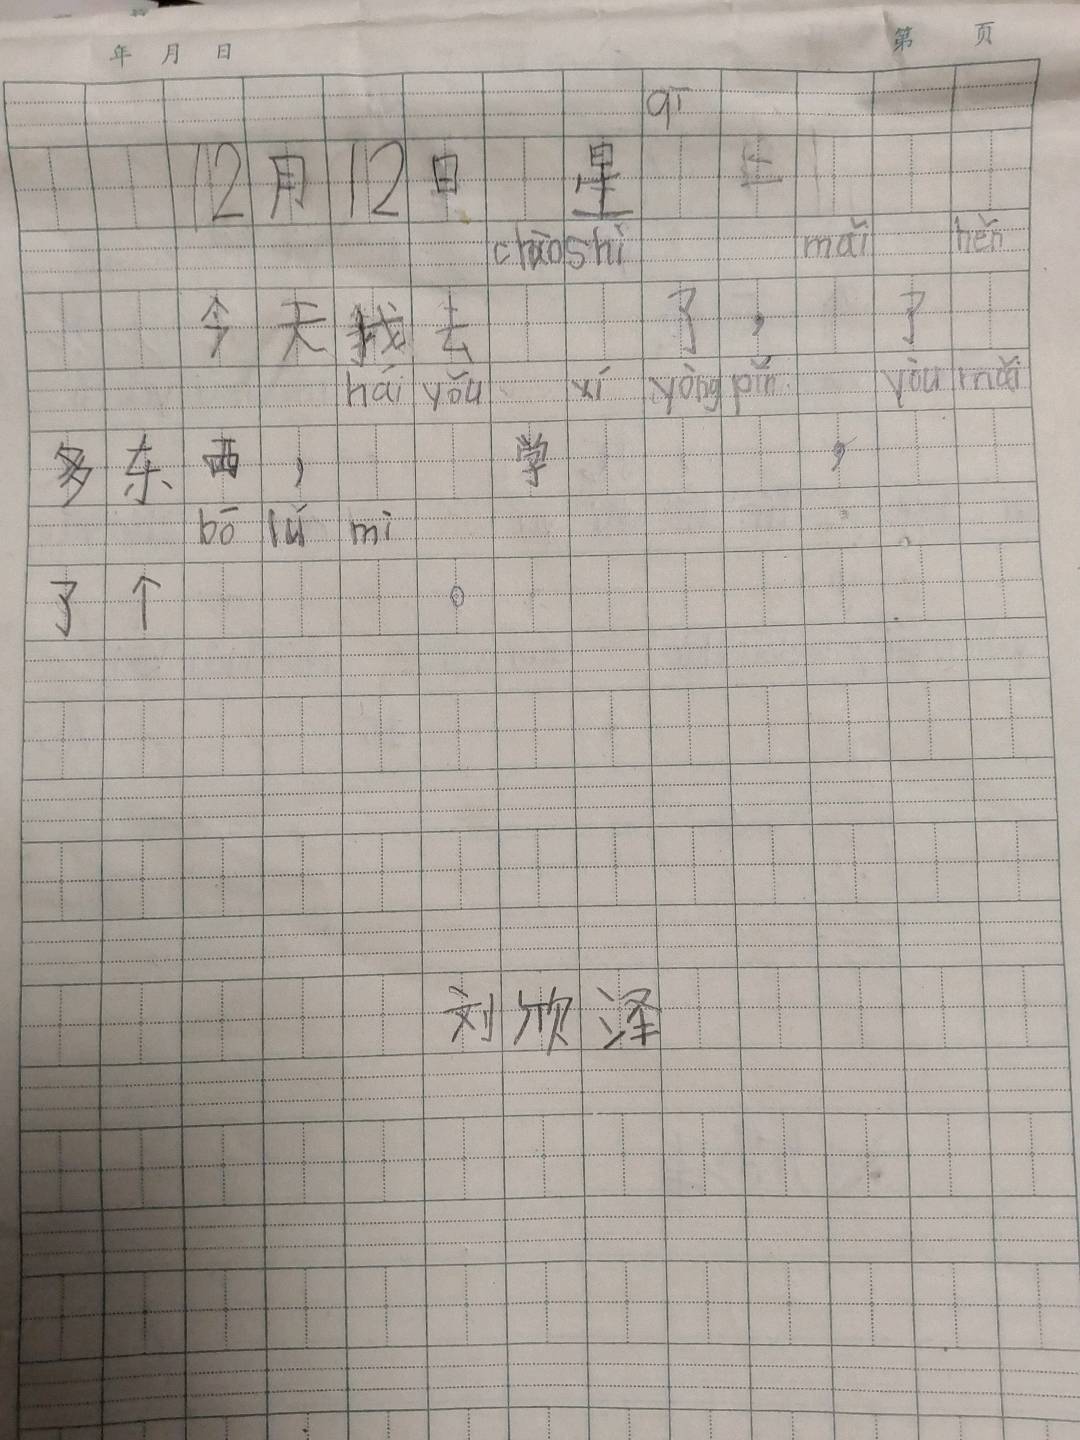 年 月 日 第 页
qī
12月12日 星
chāoshì mǎi hěn
今天我去 了， 了
hái yǒu xí yòng pǐn yòu mǎi
多东西， 学 ，
bō lú mì
了个 。
刘欣泽